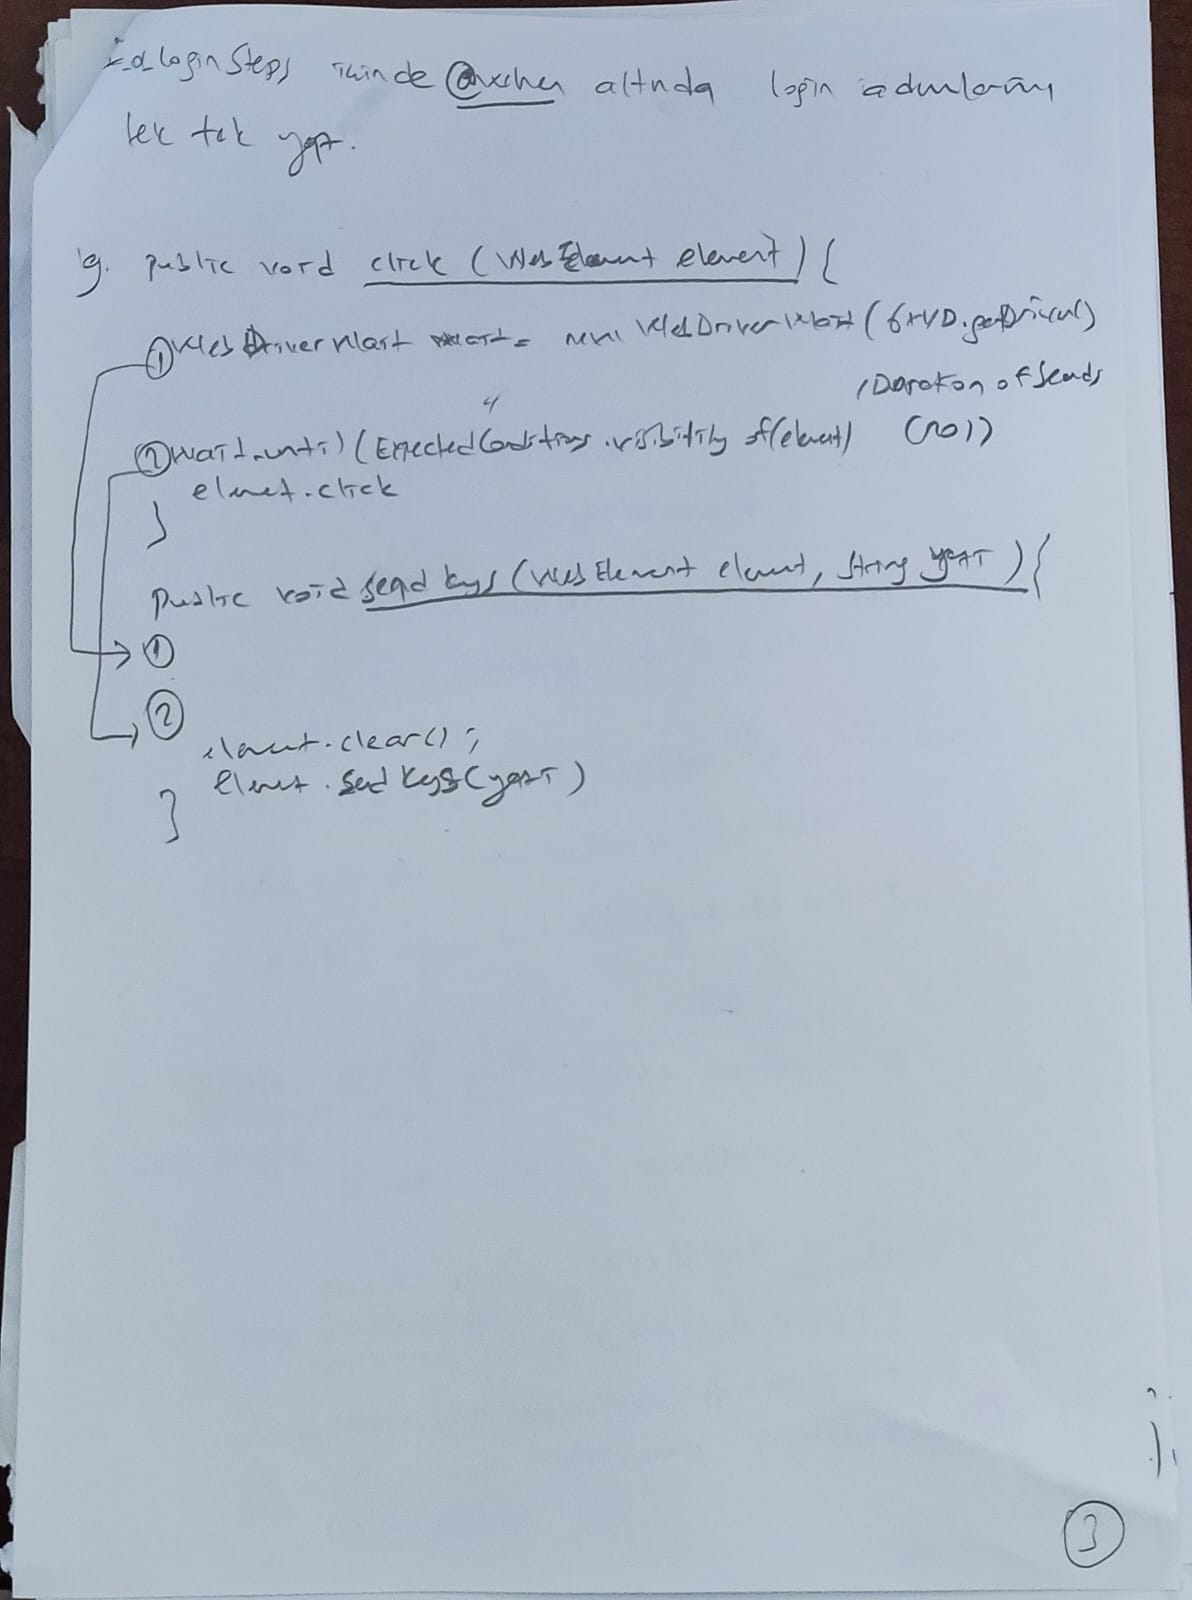 LoginSteps içinde @when altında login adımlarını
tek tek yap.
9. public void click (WebElement element) {
① WebDriverWait wait = new WebDriverWait (GWD.getDriver()
, Duration of Seconds
② wait.until (ExpectedConditions.visibility of (element) (20))
element.click
}
public void sendkeys (WebElement element, String yazı) {
①
②
element.clear();
Element.sendKeys(yazı)
}
3